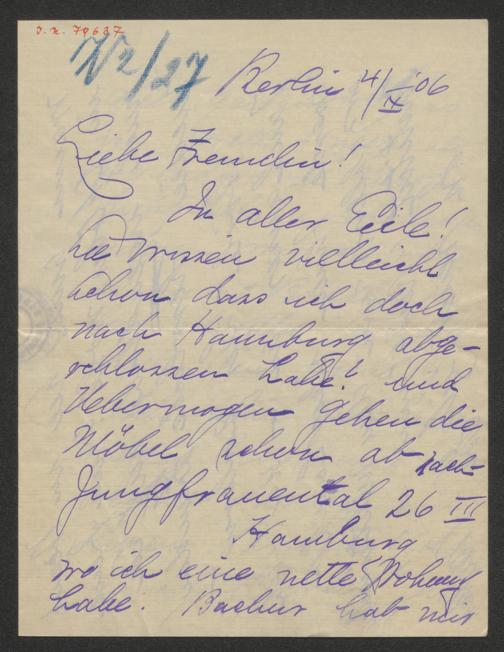 J.N. 79687
N2/27
Berlin 4/IX '06
Liebe Freundin!
In aller Eile!
Sie wissen vielleicht
schon dass ich doch
nach Hamburg abge-
schlossen habe! und
Uebermorgen gehen die
Möbel schon ab nach
Jungfrauental 26 III
Hamburg
wo ich eine nette Wohnung
habe. hat mir